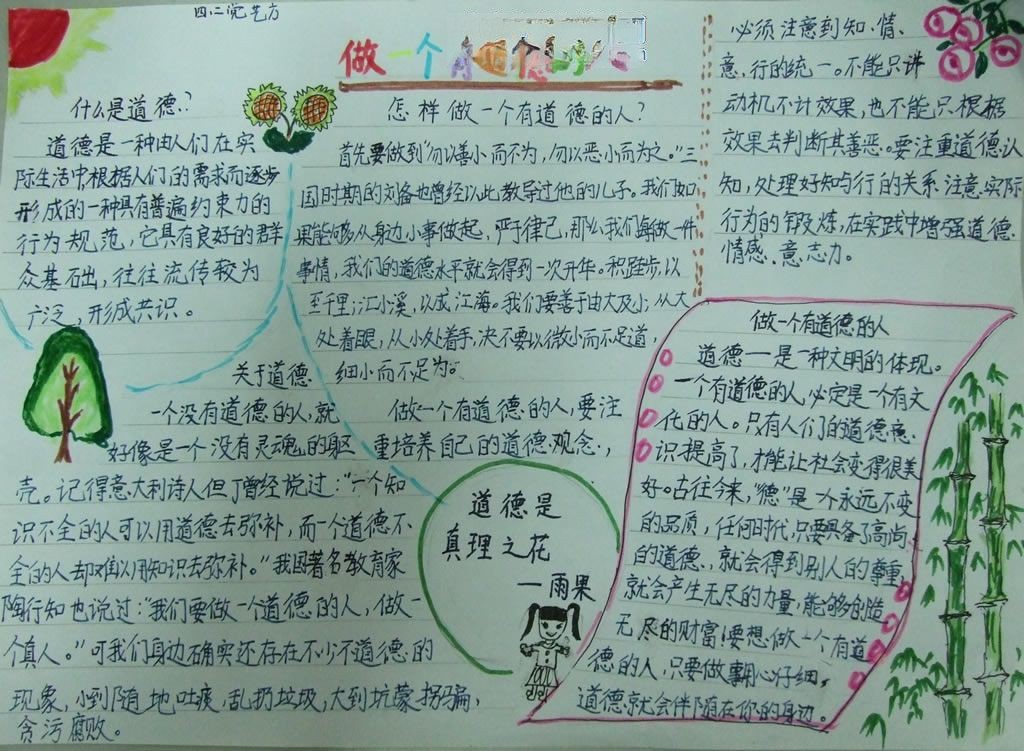 四二党艺方
做一个有道德的
什么是道德?
道德是一种由人们在实
际生活中根据人们的需求而逐步
形成的一种具有普遍约束力的
行为规范,它具有良好的群
众基础,往往流传较为
广泛,形成共识。
关于道德
一个没有道德的人,就
好像是一个没有灵魂的躯
壳。记得意大利诗人但丁曾经说过:"一个知
识不全的人可以用道德去弥补,而一个道德不
全的人却难以用知识去弥补。"我国著名教育家
陶行知也说过:"我们要做一个道德的人,做一
个真人。"可我们身边确实还存在不少不道德的
现象,小到随地吐痰,乱扔垃圾,大到坑蒙拐骗,
贪污腐败。
怎样做一个有道德的人?
首先要做到"勿以善小而不为,勿以恶小而为之。"三
国时期的刘备也曾经以此教导过他的儿子。我们如
果能够从身边小事做起,严于律己,那么我们每做一件
事情,我们的道德水平就会得到一次升华。积跬步,以
至千里;汇小溪,以成江海。我们要善于由大及小,从大
处着眼,从小处着手,决不要以微小而不足道,
细小而不足为。
做一个有道德的人,要注
重培养自己的道德观念,
必须注意到知、情、
意、行的统一。不能只讲
动机不计效果,也不能只根据
效果去判断其善恶。要注重道德认
知,处理好知与行的关系注意实际
行为的锻炼,在实践中增强道德
情感、意志力。
道德是
真理之花
—雨果
做一个有道德的人
道德一一是一种文明的体现。
一个有道德的人,必定是一个有文
化的人。只有人们的道德意
识提高了,才能让社会变得很美
好。古往今来,"德"是一个永远不变
的品质,任何时代,只要具备了高尚
的道德、就会得到别人的尊重,
就会产生无尽的力量,能够创造
无尽的财富!要想做一个有道
德的人,只要做事用心仔细,
道德就会伴随在你的身边。